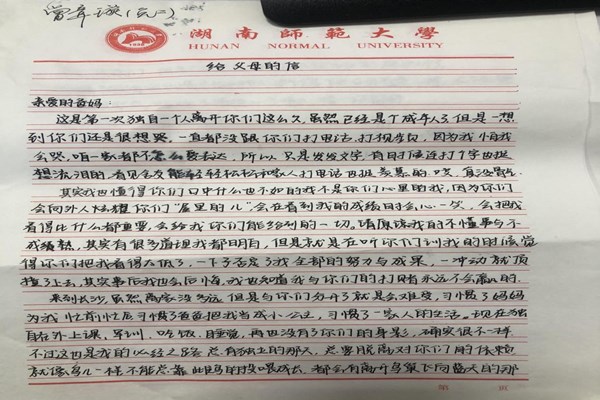 湖南師範大學
HUNAN NORMAL UNIVERSITY
给父母的信
亲爱的爸妈:
这是第一次独自一个人离开你们这么久,虽然已经是个成年人了但是一想
到你们还是很想哭。一直都没跟你们打电话,打视频,因为我怕我
会哭,咱一家都不怎么会表达,所以只是发发文字,有时候连打个字也挺
想流泪的,看见室友能轻轻松松和家人打电话也挺羡慕的。唉,真没出
其实我也懂得你们口中什么也不如的我不是你们心里的我,因为你们
会向外人炫耀你们"屋里的儿"会在看到我的成绩时会心一笑,会把我
看得比什么都重要,会给我你们能给到的一切,请原谅我的不懂事与不
成熟,其实有很多道理我都明白,但是就是在听你们训我的时候觉
得你们把我看得太低了,一下子否定了我全部的努力与成果,一冲动就顶
撞了上去,其实事后我也会后悔,我也知道我与你们的打赌永远不会赢的。
来到长沙,虽然离家没多远,但是与你们分开了就是会难受,习惯了妈妈
为我忙前忙后习惯了爸爸把我当成小公主,习惯了一家人的生活。现在独
自在外上课,军训,吃饭,睡觉,再也没有了你们的身影,确实很不一样
不过这也是我的必经之路,总有独立的那天,总要脱离对你们的依赖
就像鸟儿一样不能总靠此妈的投喂成长,都会有离开鸟巢飞向蓝天的那
第 页